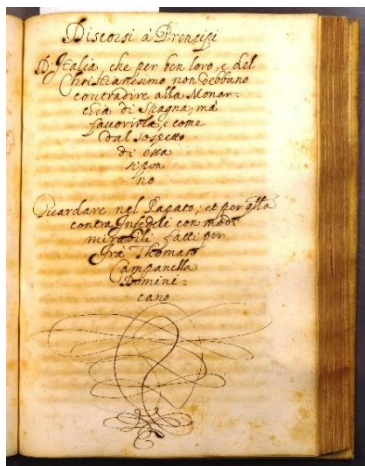 Discorsi à Prencipi
D'Italia, che per ben loro, e del
Christianesimo non debbano
contradire alla Monar=
chia di Spagna; mà
favorirla; e come
dal sospetto
di essa
si pon
no
Guardare nel Papato, et per essa
contra Infedeli con modi
mirabili fatti per
Frà Thomaso
Campanella
Domini=
cano